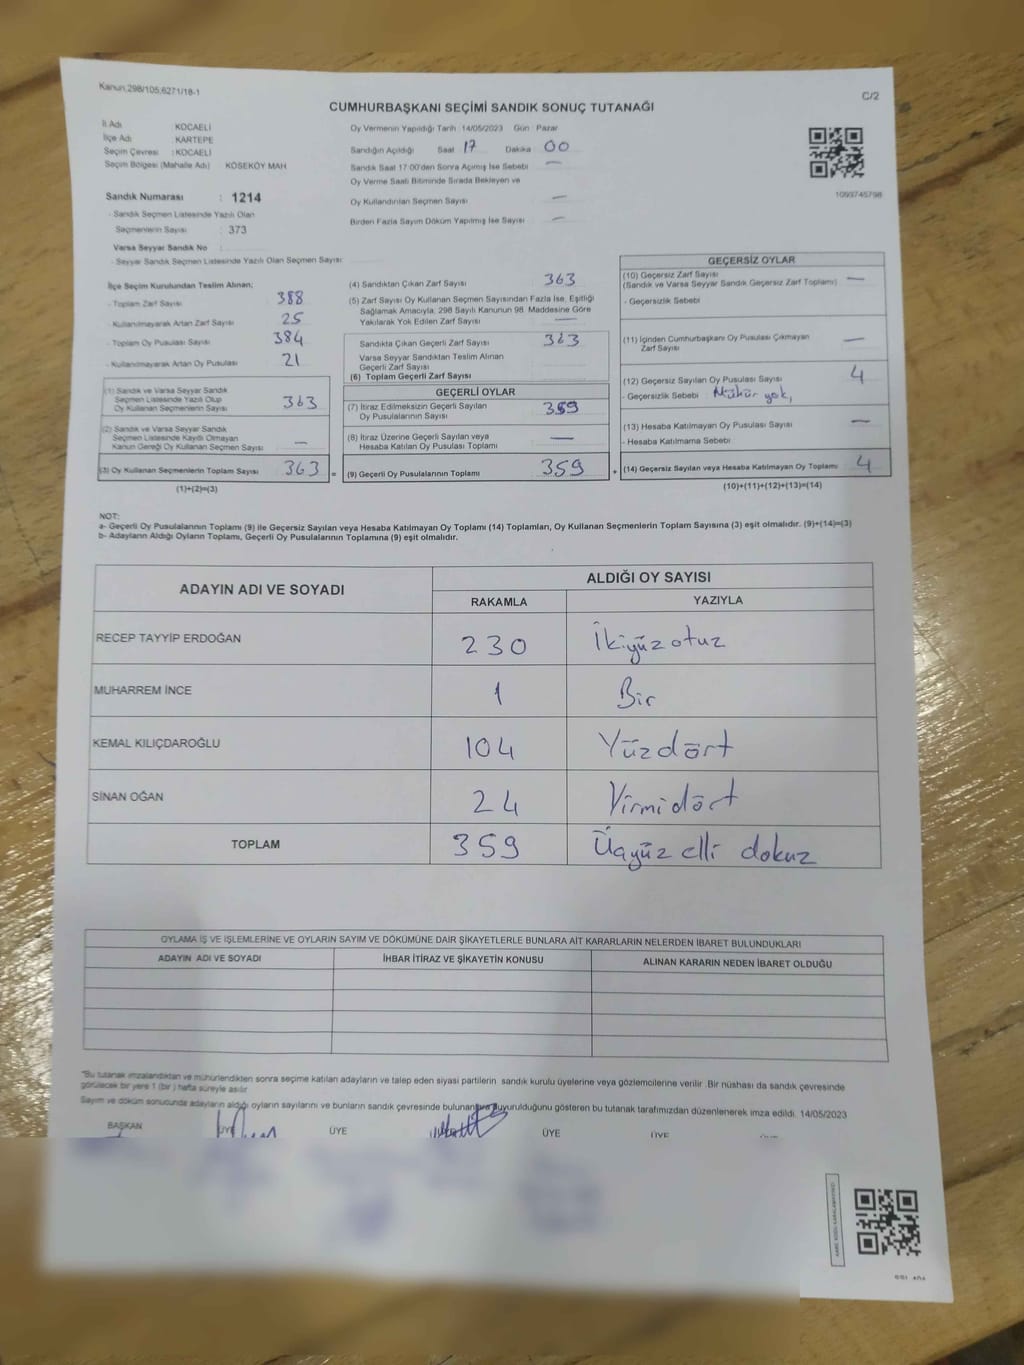 Kanun,298/105,6271/18-1
C/2
CUMHURBAŞKANI SEÇİMİ SANDIK SONUÇ TUTANAĞI
İl Adı : KOCAELİ
İlçe Adı : KARTEPE
Seçim Çevresi : KOCAELİ
Seçim Bölgesi (Mahalle Adı) KÖSEKÖY MAH
Sandık Numarası : 1214
- Sandık Seçmen Listesinde Yazılı Olan
Seçmenlerin Sayısı : 373
Varsa Seyyar Sandık No :
- Seyyar Sandık Seçmen Listesinde Yazılı Olan Seçmen Sayısı:
Oy Vermenin Yapıldığı Tarih :14/05/2023 Gün : Pazar
Sandığın Açıldığı Saat 17 Dakika 00
Sandık Saat 17:00'den Sonra Açımış İse Sebebi —
Oy Verme Saati Bitiminde Sırada Bekleyen ve
Oy Kullandırılan Seçmen Sayısı —
Birden Fazla Sayım Döküm Yapılmış İse Sayısı —
1093745798
İlçe Seçim Kurulundan Teslim Alınan;
- Toplam Zarf Sayısı 388
- Kullanılmayarak Artan Zarf Sayısı 25
- Toplam Oy Pusulası Sayısı 384
- Kullanılmayarak Artan Oy Pusulası 21
(1) Sandık ve Varsa Seyyar Sandık
Seçmen Listesinde Yazılı Olup
Oy Kullanan Seçmenlerin Sayısı 363
(2) Sandık ve Varsa Seyyar Sandık
Seçmen Listesinde Kaydı Olmayan
Kanun Gereği Oy Kullanan Seçmen Sayısı —
(3) Oy Kullanan Seçmenlerin Toplam Sayısı 363 =
(1)+(2)=(3)
(4) Sandıktan Çıkan Zarf Sayısı 363
(5) Zarf Sayısı Oy Kullanan Seçmen Sayısından Fazla İse, Eşitliği
Sağlamak Amacıyla, 298 Sayılı Kanunun 98. Maddesine Göre
Yakılarak Yok Edilen Zarf Sayısı —
Sandıkta Çıkan Geçerli Zarf Sayısı 363
Varsa Seyyar Sandıktan Teslim Alınan
Geçerli Zarf Sayısı
(6) Toplam Geçerli Zarf Sayısı
GEÇERLİ OYLAR
(7) İtiraz Edilmeksizin Geçerli Sayılan
Oy Pusulalarının Sayısı 359
(8) İtiraz Üzerine Geçerli Sayılan veya
Hesaba Katılan Oy Pusulası Sayısı —
(9) Geçerli Oy Pusulalarının Toplamı 359 +
GEÇERSİZ OYLAR
(10) Geçersiz Zarf Sayısı
(Sandık ve Varsa Seyyar Sandık Geçersiz Zarf Toplamı) —
- Geçersizlik Sebebi
(11) İçinden Cumhurbaşkanı Oy Pusulası Çıkmayan
Zarf Sayısı —
(12) Geçersiz Sayılan Oy Pusulası Sayısı 4
- Geçersizlik Sebebi Mühür yok,
(13) Hesaba Katılmayan Oy Pusulası Sayısı —
- Hesaba Katılmama Sebebi
(14) Geçersiz Sayılan veya Hesaba Katılmayan Oy Toplamı 4
(10)+(11)+(12)+(13)=(14)
NOT:
a- Geçerli Oy Pusulalarının Toplamı (9) ile Geçersiz Sayılan veya Hesaba Katılmayan Oy Toplamı (14) Toplamları, Oy Kullanan Seçmenlerin Toplam Sayısına (3) eşit olmalıdır. (9)+(14)=(3)
b- Adayların Aldığı Oyların Toplamı, Geçerli Oy Pusulalarının Toplamına (9) eşit olmalıdır.
ADAYIN ADI VE SOYADI
ALDIĞI OY SAYISI
RAKAMLA YAZIYLA
RECEP TAYYİP ERDOĞAN 230 İkiyüz otuz
MUHARREM İNCE 1 Bir
KEMAL KILIÇDAROĞLU 104 Yüzdört
SİNAN OĞAN 24 Yirmidört
TOPLAM 359 Üçyüz elli dokuz
OYLAMA İŞ VE İŞLEMLERİNE VE OYLARIN SAYIM VE DÖKÜMÜNE DAİR ŞİKAYETLERLE BUNLARA AİT KARARLARIN NELERDEN İBARET BULUNDUKLARI
ADAYIN ADI VE SOYADI İHBAR İTİRAZ VE ŞİKAYETİN KONUSU ALINAN KARARIN NEDEN İBARET OLDUĞU
"Bu tutanak imzalandıktan ve mühürlendikten sonra seçime katılan adayların ve talep eden siyasi partilerin sandık kurulu üyelerine veya gözlemcilerine verilir .Bir nüshası da sandık çevresinde
görülecek bir yere 1 (bir ) hafta süreyle asılır
Sayım ve döküm sonucunda adayların aldığı oyların sayılarını ve bunların sandık çevresinde duyurulduğunu gösteren bu tutanak tarafımızdan düzenlenerek imza edildi. 14/05/2023
BAŞKAN ÜYE ÜYE ÜYE ÜYE